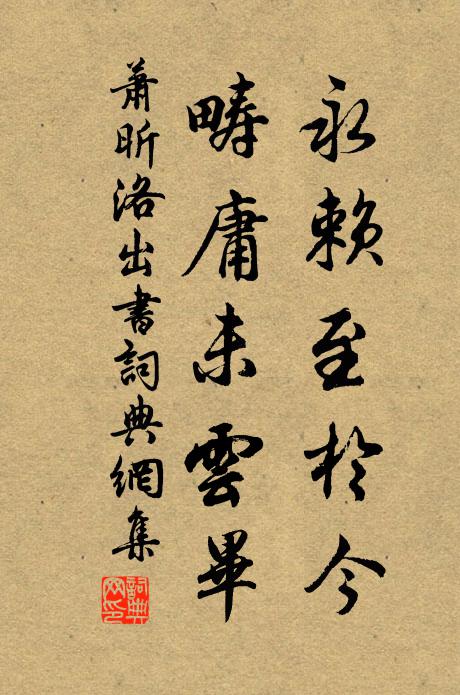 永賴至於今
疇庸未雲畢
蕭昕洛出書詞典網集
詞典網印